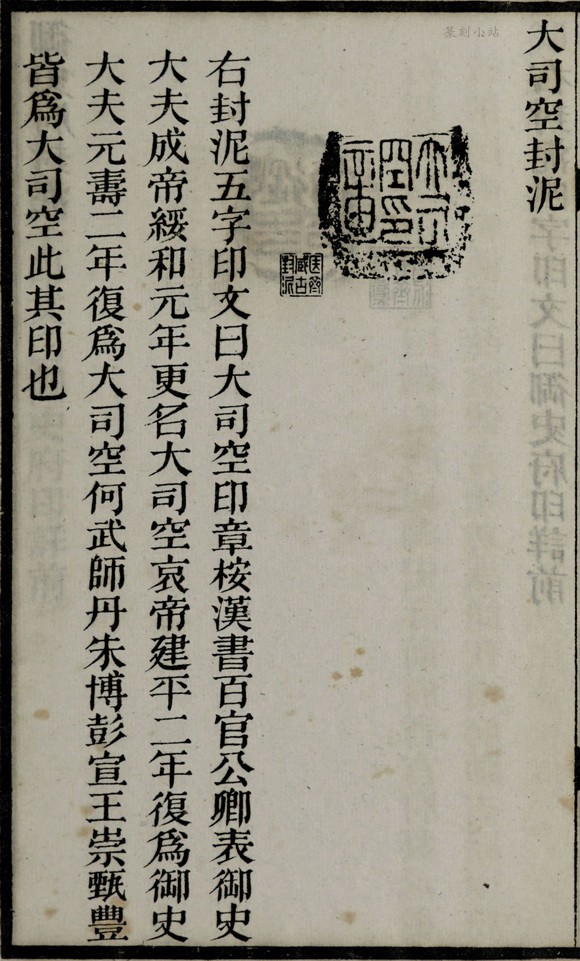 篆刻小站
大司空封泥
大司空印章
匋齋藏古封泥
右封泥五字印文曰大司空印章桉漢書百官公卿表御史
大夫成帝綏和元年更名大司空哀帝建平二年復爲御史
大夫元壽二年復爲大司空何武師丹朱博彭宣王崇甄豐
皆爲大司空此其印也